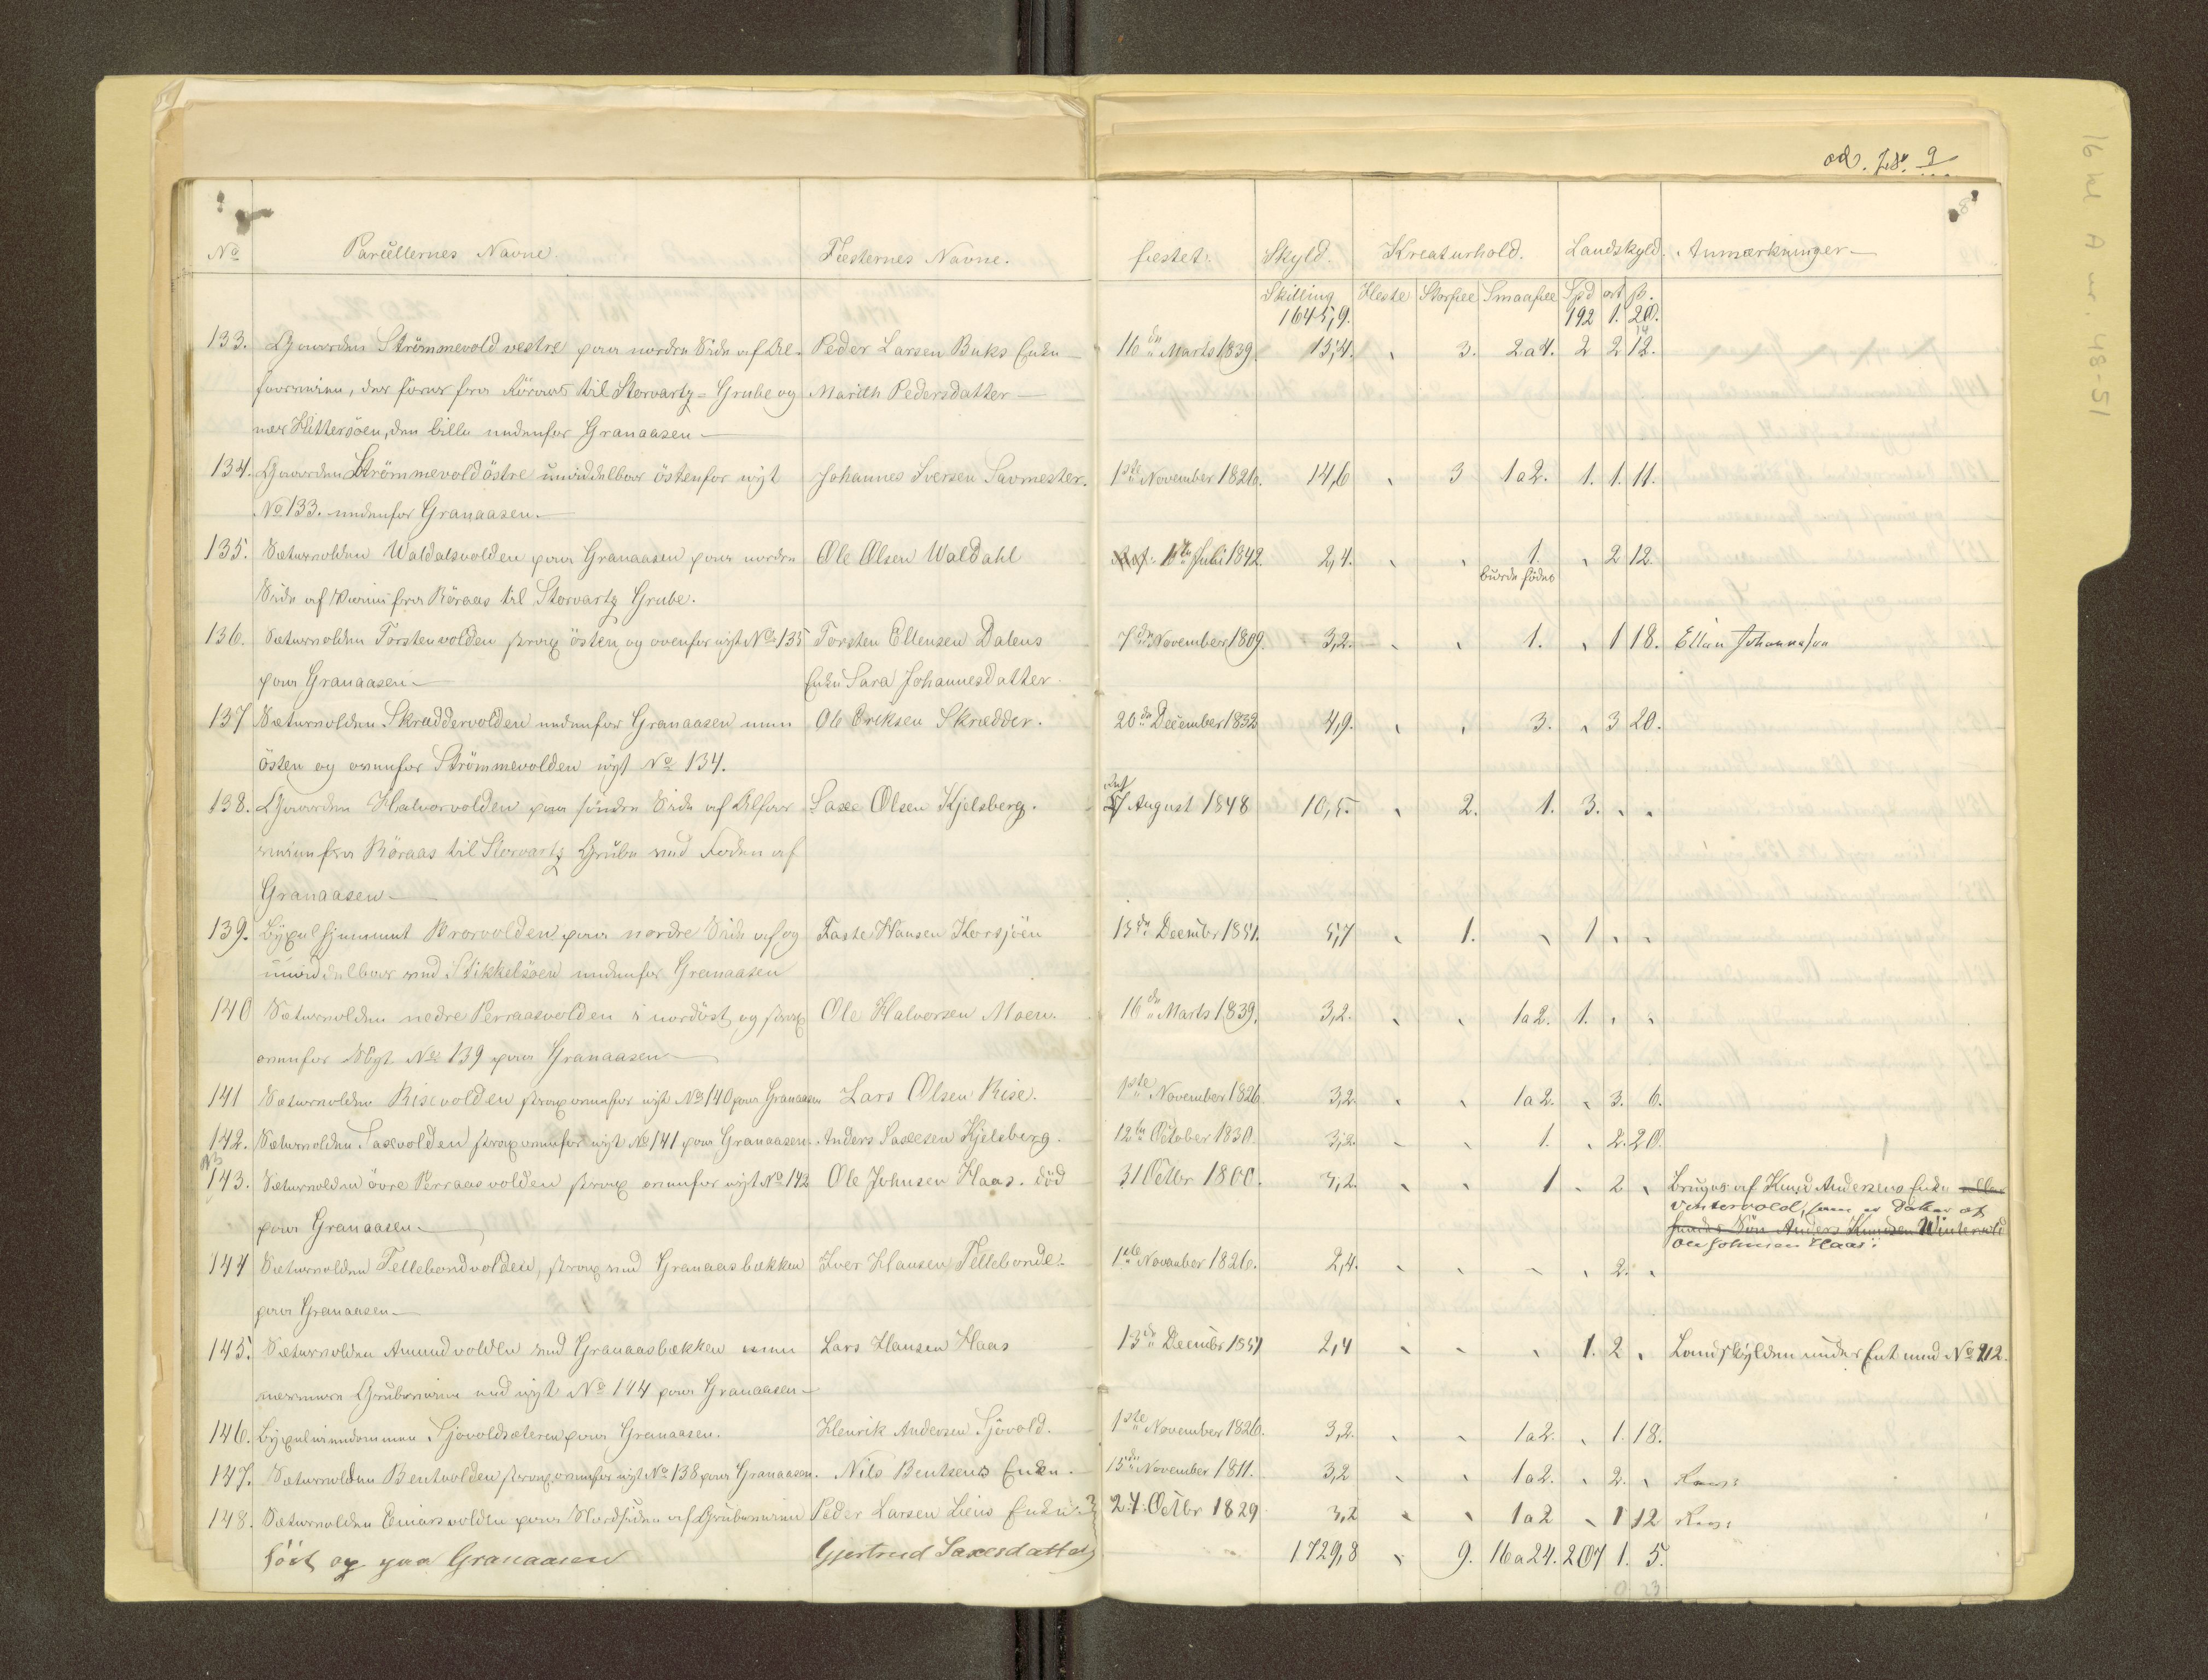 ad. Jr. 9
No Parcellernes Navne. Fæsternes Navne. fæstet. Skyld. Kreaturhold. Landskyld. Anmærkninger
Skilling Heste Storfee Smaafee Spd ort ſ.
1645,9. 192 1. 20.
133. Gaarden Strömmevold vestre paa nordre Side af Al- Peder Larsen Buks Enke 16de Marts 1839. 15,4. 3. 2a4. 2 2 12.
farveien, der förer fra Röraas til Storvartz-Grube og Marith Pedersdatter
ved Hittersöen, den lille nedenfor Granaasen
134. Gaarden Strömmevold östre umiddelbar östenfor nyt Johannes Iversen Savmester. 1ste November 1826. 14,6 3 1a2. 1. 1. 11.
No 133. nedenfor Granaasen.
135. Sætervolden Waldalsvolden paa Granaasen paa nordre Ole Olsen Waldahl Juli 1842. 2,4. 1. 2 12.
burde födes
Side af Veien fra Röraas til Storvartz Grube.
136. Sætervolden Torstenvolden strax östen og ovenfor nyt No 135 Torsten Ellensen Dalens 7de November 1809. 3,2. 1. 1 18. Ellen Johannesen
paa Granaasen Enke Sara Johannesdatter
137 Sætervolden Skraddervolden nedenfor Granaasen men Ole Eriksen Skrædder. 20de December 1832 4,9. 3. 3 20.
östen og ovenfor Strömmevolden nyt No 134.
138. Gaarden Halvorvolden paa söndre Side af Alfar Saxe Olsen Kjelsberg. 27 August 1848 10,5. 2. 1. 3.
veien fra Röraas til Storvartz Grube ved Foden af
Granaasen
139. Bÿxelhjemmet Brorvolden paa nordre Side af og Faste Hansen Korsjöen 13de Decembr 1851. 5,7 1. 1
umiddelbar ved Stikkelsöen nedenfor Granaasen
140 Sætervolden nedre Perraasvolden i nordöst og strax Ole Halvorsen Moen. 16de Marts 1839. 3,2. 1a2. 1.
ovenfor Nyt No 139 paa Granaasen
141 Sætervolden Risevolden strax ovenfor nyt No 140 paa Granaasen Lars Olsen Rise. 1ste November 1826. 3,2. 1a2. 3. 6.
142. Sætervolden Saxevolden strax ovenfor nyt No 141 paa Granaasen. Anders Saxesen Kjelsberg. 12te October 1830. 3,2. 1. 2. 20.
143. Sætervolden övre Perraasvolden strax ovenfor nyt No 142 Ole Johnsen Haas. död 31 Octbr 1800. 3,2. 1 2 Bruges af Knud Andersens Enke
Vintervold, som er Datter af
paa Granaasen. Sön Anders Knudsen Wintervold
Ole Johnsen Haas.
144 Sætervolden Tellebondvolden, strax ved Granaasbækken Iver Hansen Tellebonde. 1ste November 1826. 2,4. 2.
paa Granaasen
145. Sætervolden Amundvolden ved Granaasbækken men Lars Hansen Haas 13de Decembr 1851 2,4 1. 2 Landskÿlden under Eet med No 212.
nærmere Grubeveien end nyt No 144 paa Granaasen
146. Bÿxeleiendommen Sjövoldsæteren paa Granaasen. Henrik Andersen Sjövold. 1ste November 1826. 3,2. 1a2. 1. 18.
147. Sætervolden Bentvolden strax ovenfor nyt No 138 paa Granaasen. Nils Bentsens Enke. 15de November 1811. 3,2 1a2. 2.
148. Sætervolden Einarsvolden paa Nordsiden af Grubeveien Peder Larsen Liens Enke. 24. Octbr 1829 3,2 1a2 1 12
öst og paa Granaasen Gjertrud Saxesdatter
1729,8 9. 16a24. 207 1. 5.
0 23
16 hl A nr. 48-51